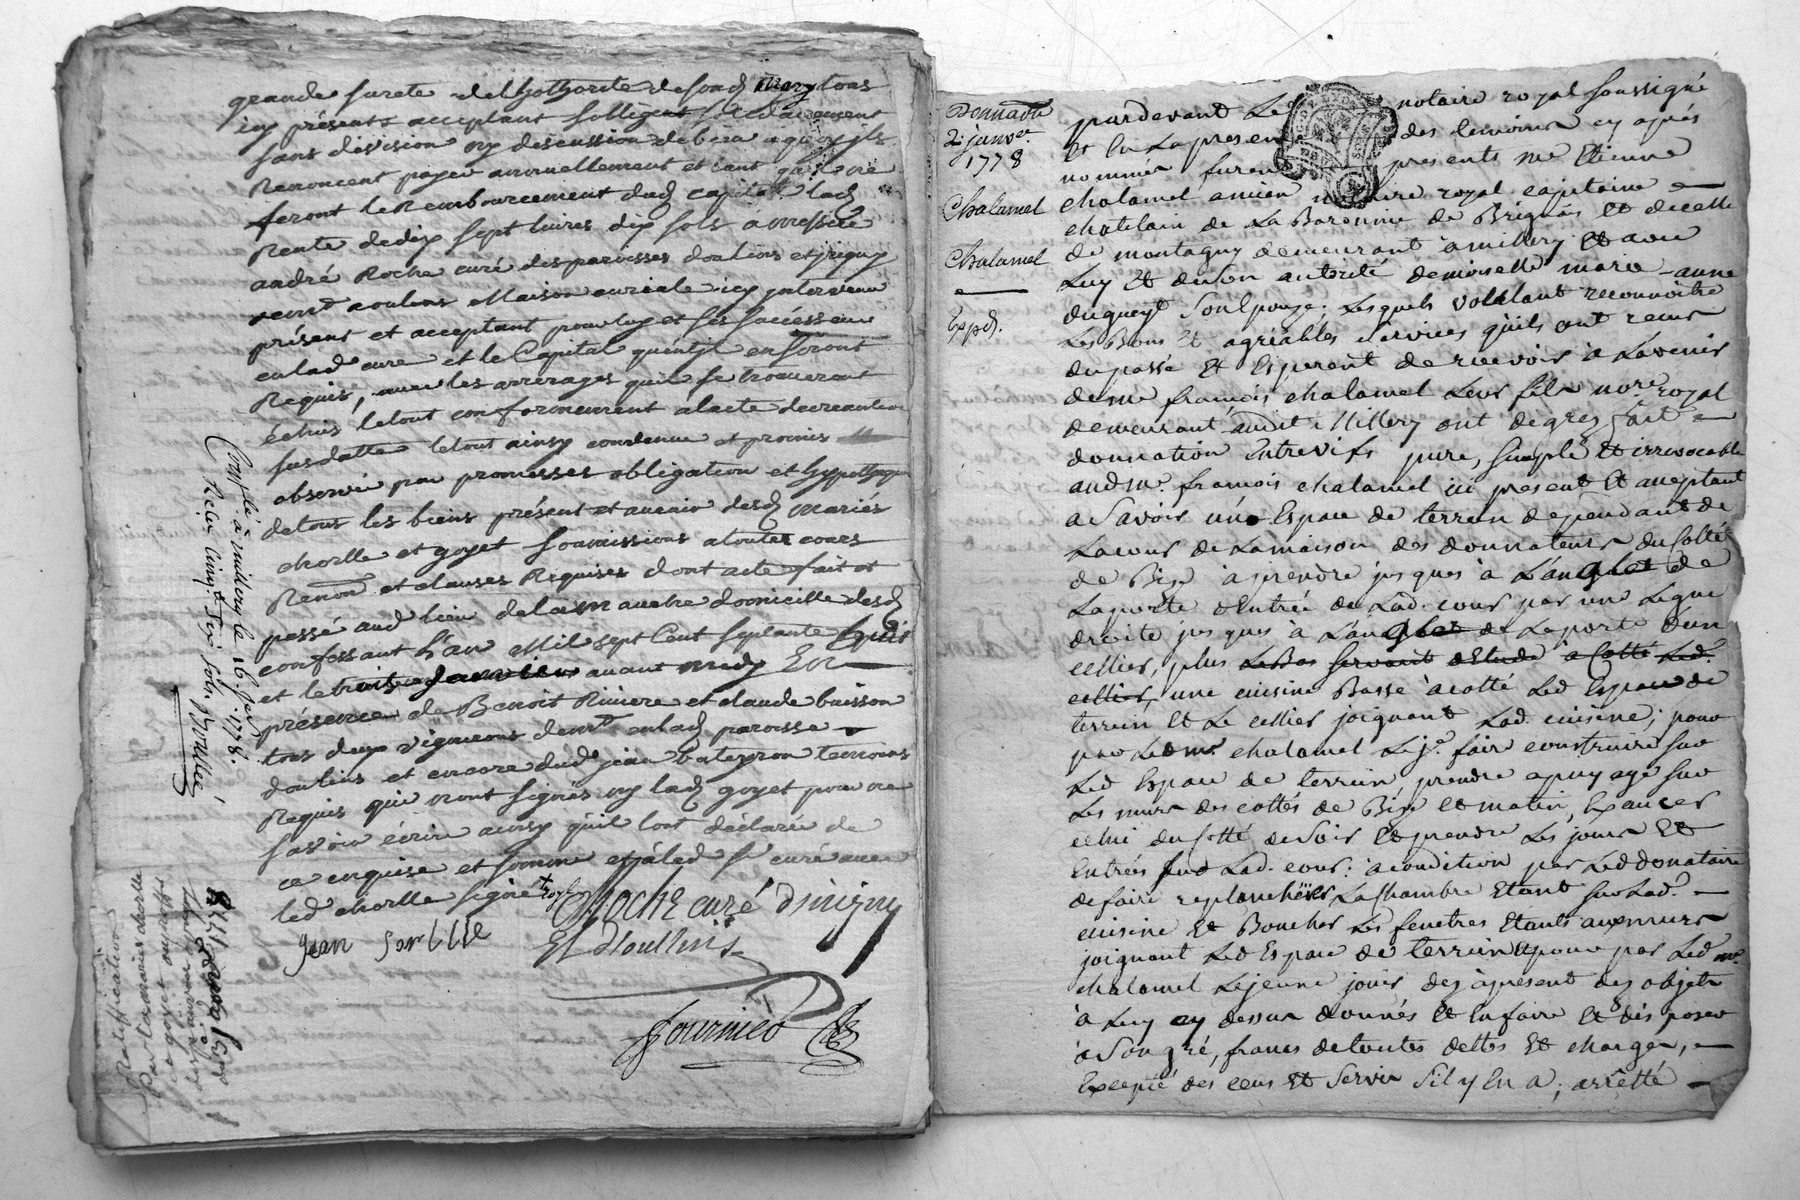 grande sureté de l'hothorité desond mary tous
icy présents acceptant sobligent solidairement
sans division ny discussion de bien a quoy ils
Renoncent payer annuellement et tant qu'il ne
feront le Remboursement dud capital lad
Rente de dix sept livres dix sols à messire
andré Roche curé des paroisses doulins et jrigny
demt a oulins Maison curiale icy jntervenu
présent et acceptant pour luy et ses successeurs
en lad cure et le Capital quént jl en seront
Requis, avec les arrerages qui se trouveront
échus letout conformement alacte de creation
sus datte letout ainsy convenu et promis
observer par promesses obligation et hyppotheque
detous les biens présent et avenir desd mariés
chorlle et goyet soumissions a toutes cours
Renon et clauses Requises dont acte fait et
passé aud lieu de la domicille desd
confessant L'an Mil sept Cent septante huit
et le trois janvier avant midy En
présence de Benoit Riviere et claude buisson
tous deux vignerons demt en lad paroisse
doulins et encore dud jean temoins
Requis qui n'ont signés ny lad goyet pour ne
savoir écrire ainsy qu'il l'ont déclarée de
ce enquise et sommé led sr curé avec
led chorlle signé
Roche curé d'jrigny
et d'oullins
jean
fournier
Contrôlé à millery le 16 jer 1778.
Reçu cinq
Ratiffication
par les mariés chorlle
et goyet
Donnaon
2 janver
1778
Chalamel
Chalamel
Expd.
pardevant Le notaire royal soussigné
Et En La presen des temoins cy après
nommés furen presents me Etienne
chalamel ancien notaire royal capitaine
chatelain de La Baronnie de Brignais Et decelle
de montagny demeurant à millery Et avec
Luy Et deson autorité demoiselle marie-anne
duqueyt son Epouse; Lesquels voulant reconnoitre
Les Bons Et agréables services qu'ils ont recus
du passé Et Esperent de recevoir à Lavenir
deme françois chalamel Leur fils nore royal
demeurant audit Millery ont de gres fait
donnation Entrevifs pure, simple Et irrevocable
aud me. françois chalamel ici présent Et acceptant
a Savoir une Espace de terrein dependant de
Lacour de Lamaison des donnateurs du Cotté
de Bise à prendre jusques à L'angle de
Laporte d'Entrée de Lad. cour par une Ligne
droite jusques à L'angle de Le porte d'un
cellier, plus Le Bas servant d'Etude à Cotté Led.
cellier, une cuisine Basse à cotté Led Espace de
terrein Et Le cellier joignant Lad. cuisine; pour
par Led me chalamel Le je. faire construire sur
Led Espace de terrein, prendre apuyage sur
Les murs des cottés de Bise Et matin, Exaucer
celui du Cotté de Soir Et prendre Les jours Et
Entrées sur Lad. cour: a condition par Led donataire
defaire replancheïer La Chambre Etant sur Lad.
cuisine Et Boucher Les fenetres Etants aux murs
joignant Led Espace de terrein pour par Led me.
chalamel Lejeune jouir des à present des objets
à Luy cy dessus donnés Et En faire Et disposer
à Son gré, francs de toutes dettes Et charges,
Excepté des cens Et Servis S'il y En a; arrêtté